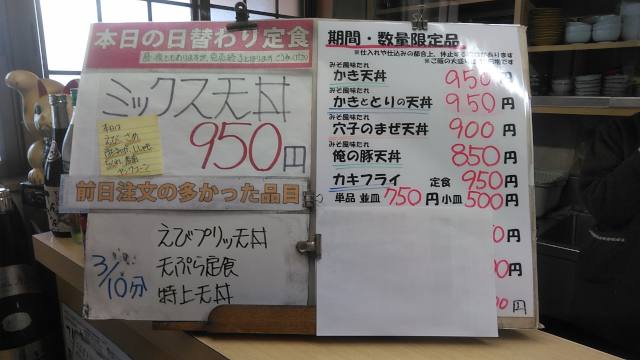 本日の日替わり定食
ミックス天丼
950円
本日は
えび
前日注文の多かった品目
3/10分
えびプリッ天丼
天ぷら定食
特上天丼
期間・数量限定品
※仕入れや仕込みの都合上、休止する
みそ風味たれ
かき天丼 950円
みそ風味たれ
かきととりの天丼 950円
みそ風味たれ
穴子のまぜ天丼 900円
みそ風味たれ
俺の豚天丼 850円
カキフライ 定食 950円
単品 並皿 750円 小皿 500円
0円
0円
0円